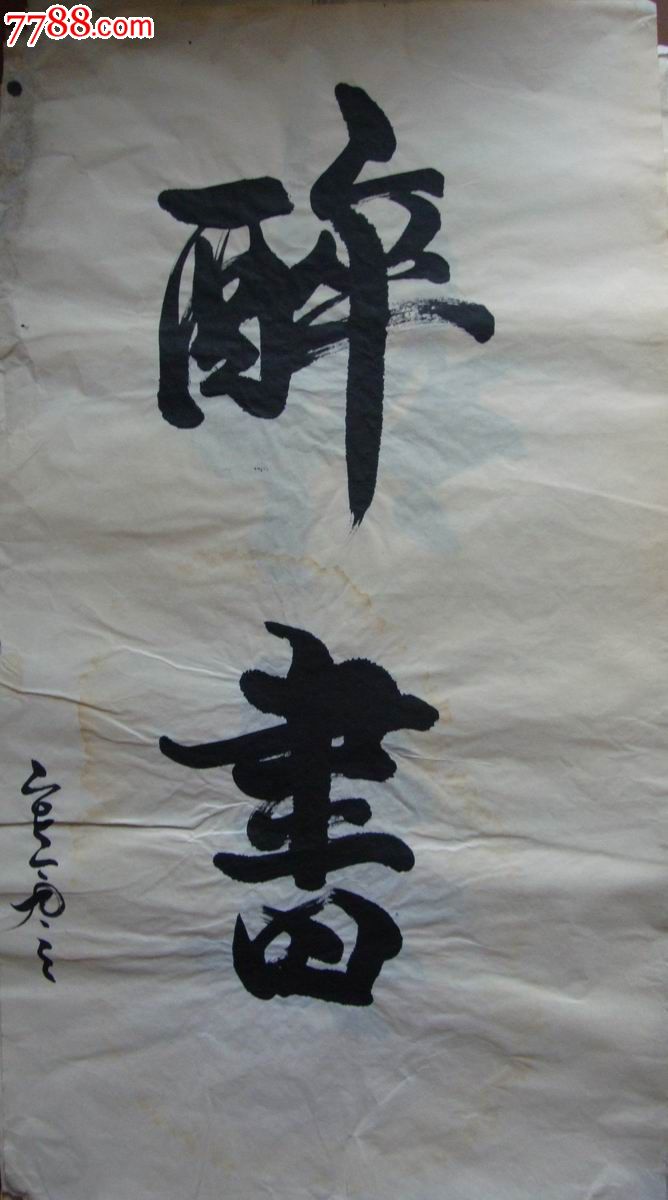 7788.com
醉
書